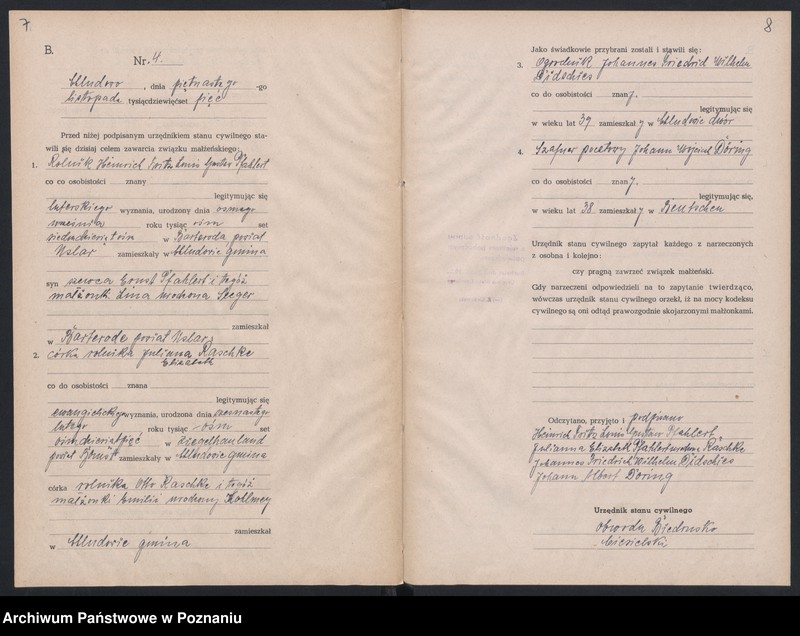 7
B.
Nr. 4.
dnia piętnastego -go
listopada tysiącdziewięćset pięć
Przed niżej podpisanym urzędnikiem stanu cywilnego sta-
wili się dzisiaj celem zawarcia związku małżeńskiego:
1. Rolnik Heinrich Fritz Louis Gustav Pfahlert
co co osobistości znany
legitymujący się
luterskiego wyznania, urodzony dnia ósmego
września roku tysiąc ośm set
siedmdziesiąt w powiat
Uslar zamieszkały w gmina
syn szewca Ernst Pfahlert i tegoż
małżonki Lina urodzona Seeger
zamieszkał
w powiat Uslar
2. córka rolnika Julianna Raschke
Elizabeth
co do osobistości znana
legitymujący się
wyznania, urodzona dnia
lutego roku tysiąc ośm set
ośmdziesiąt pięć w
powiat Bomst zamieszkały w gmina
córka rolnika Otto Raschke i tegoż
małżonki Emilii urodzony
zamieszkał
w gmina
8
Jako świadkowie przybrani zostali i stawili się:
3. Ogrodnik Johannes Friedrich Wilhelm
Didschies
co do osobistości znany.
legitymujący się
w wieku lat 39 zamieszkały w dwór
4. Szafner pocztowy Johann Döring
co do osobistości znany.
legitymujący się,
w wieku lat 38 zamieszkały w Bentschen
Urzędnik stanu cywilnego zapytał każdego z narzeczonych
z osobna i kolejno:
czy pragną zawrzeć związek małżeński.
Gdy narzeczeni odpowiedzieli na to zapytanie twierdząco,
wówczas urzędnik stanu cywilnego orzekł, iż na mocy kodeksu
cywilnego są oni odtąd prawozgodnie skojarzonymi małżonkami.
Odczytano, przyjęto i podpisano
Heinrich Fritz Louis Gustav Pfahlert
Julianna Elizabeth Pfahlert urodzona Raschke
Johannes Friedrich Wilhelm Didschies
Johann Albert Döring
Urzędnik stanu cywilnego
obwodu Biedrusko
Archiwum Państwowe w Poznaniu